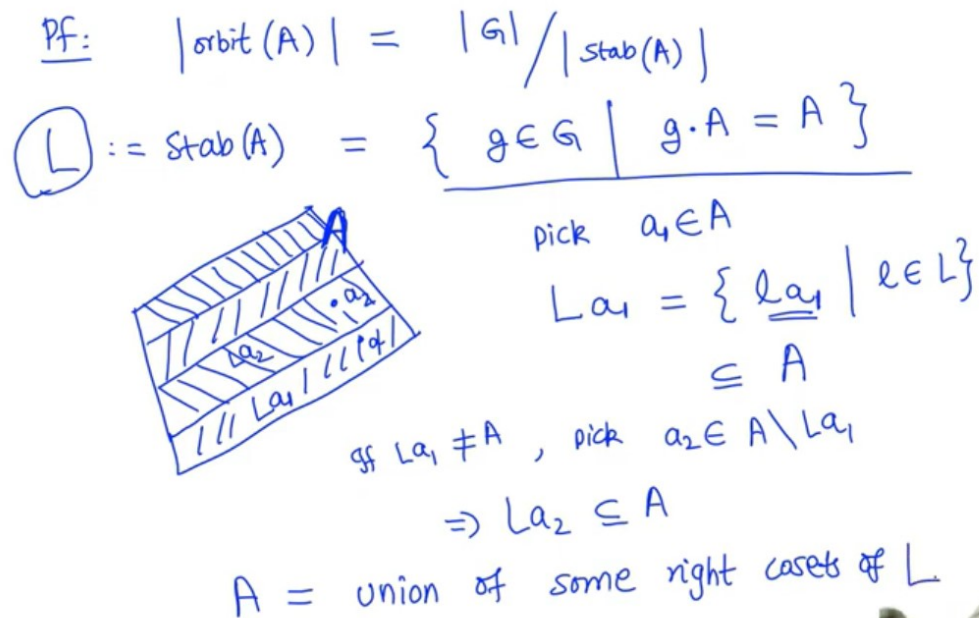 Pf: |orbit(A)| = |G|/|stab(A)|
L := Stab(A) = { g∈G | g·A = A }
pick a₁∈A
La₁ = { la₁ | l∈L}
⊆ A
A
·a₂
La₂
La₁
If La₁ ≠ A , pick a₂∈ A\La₁
⇒ La₂ ⊆ A
A = union of some right cosets of L.